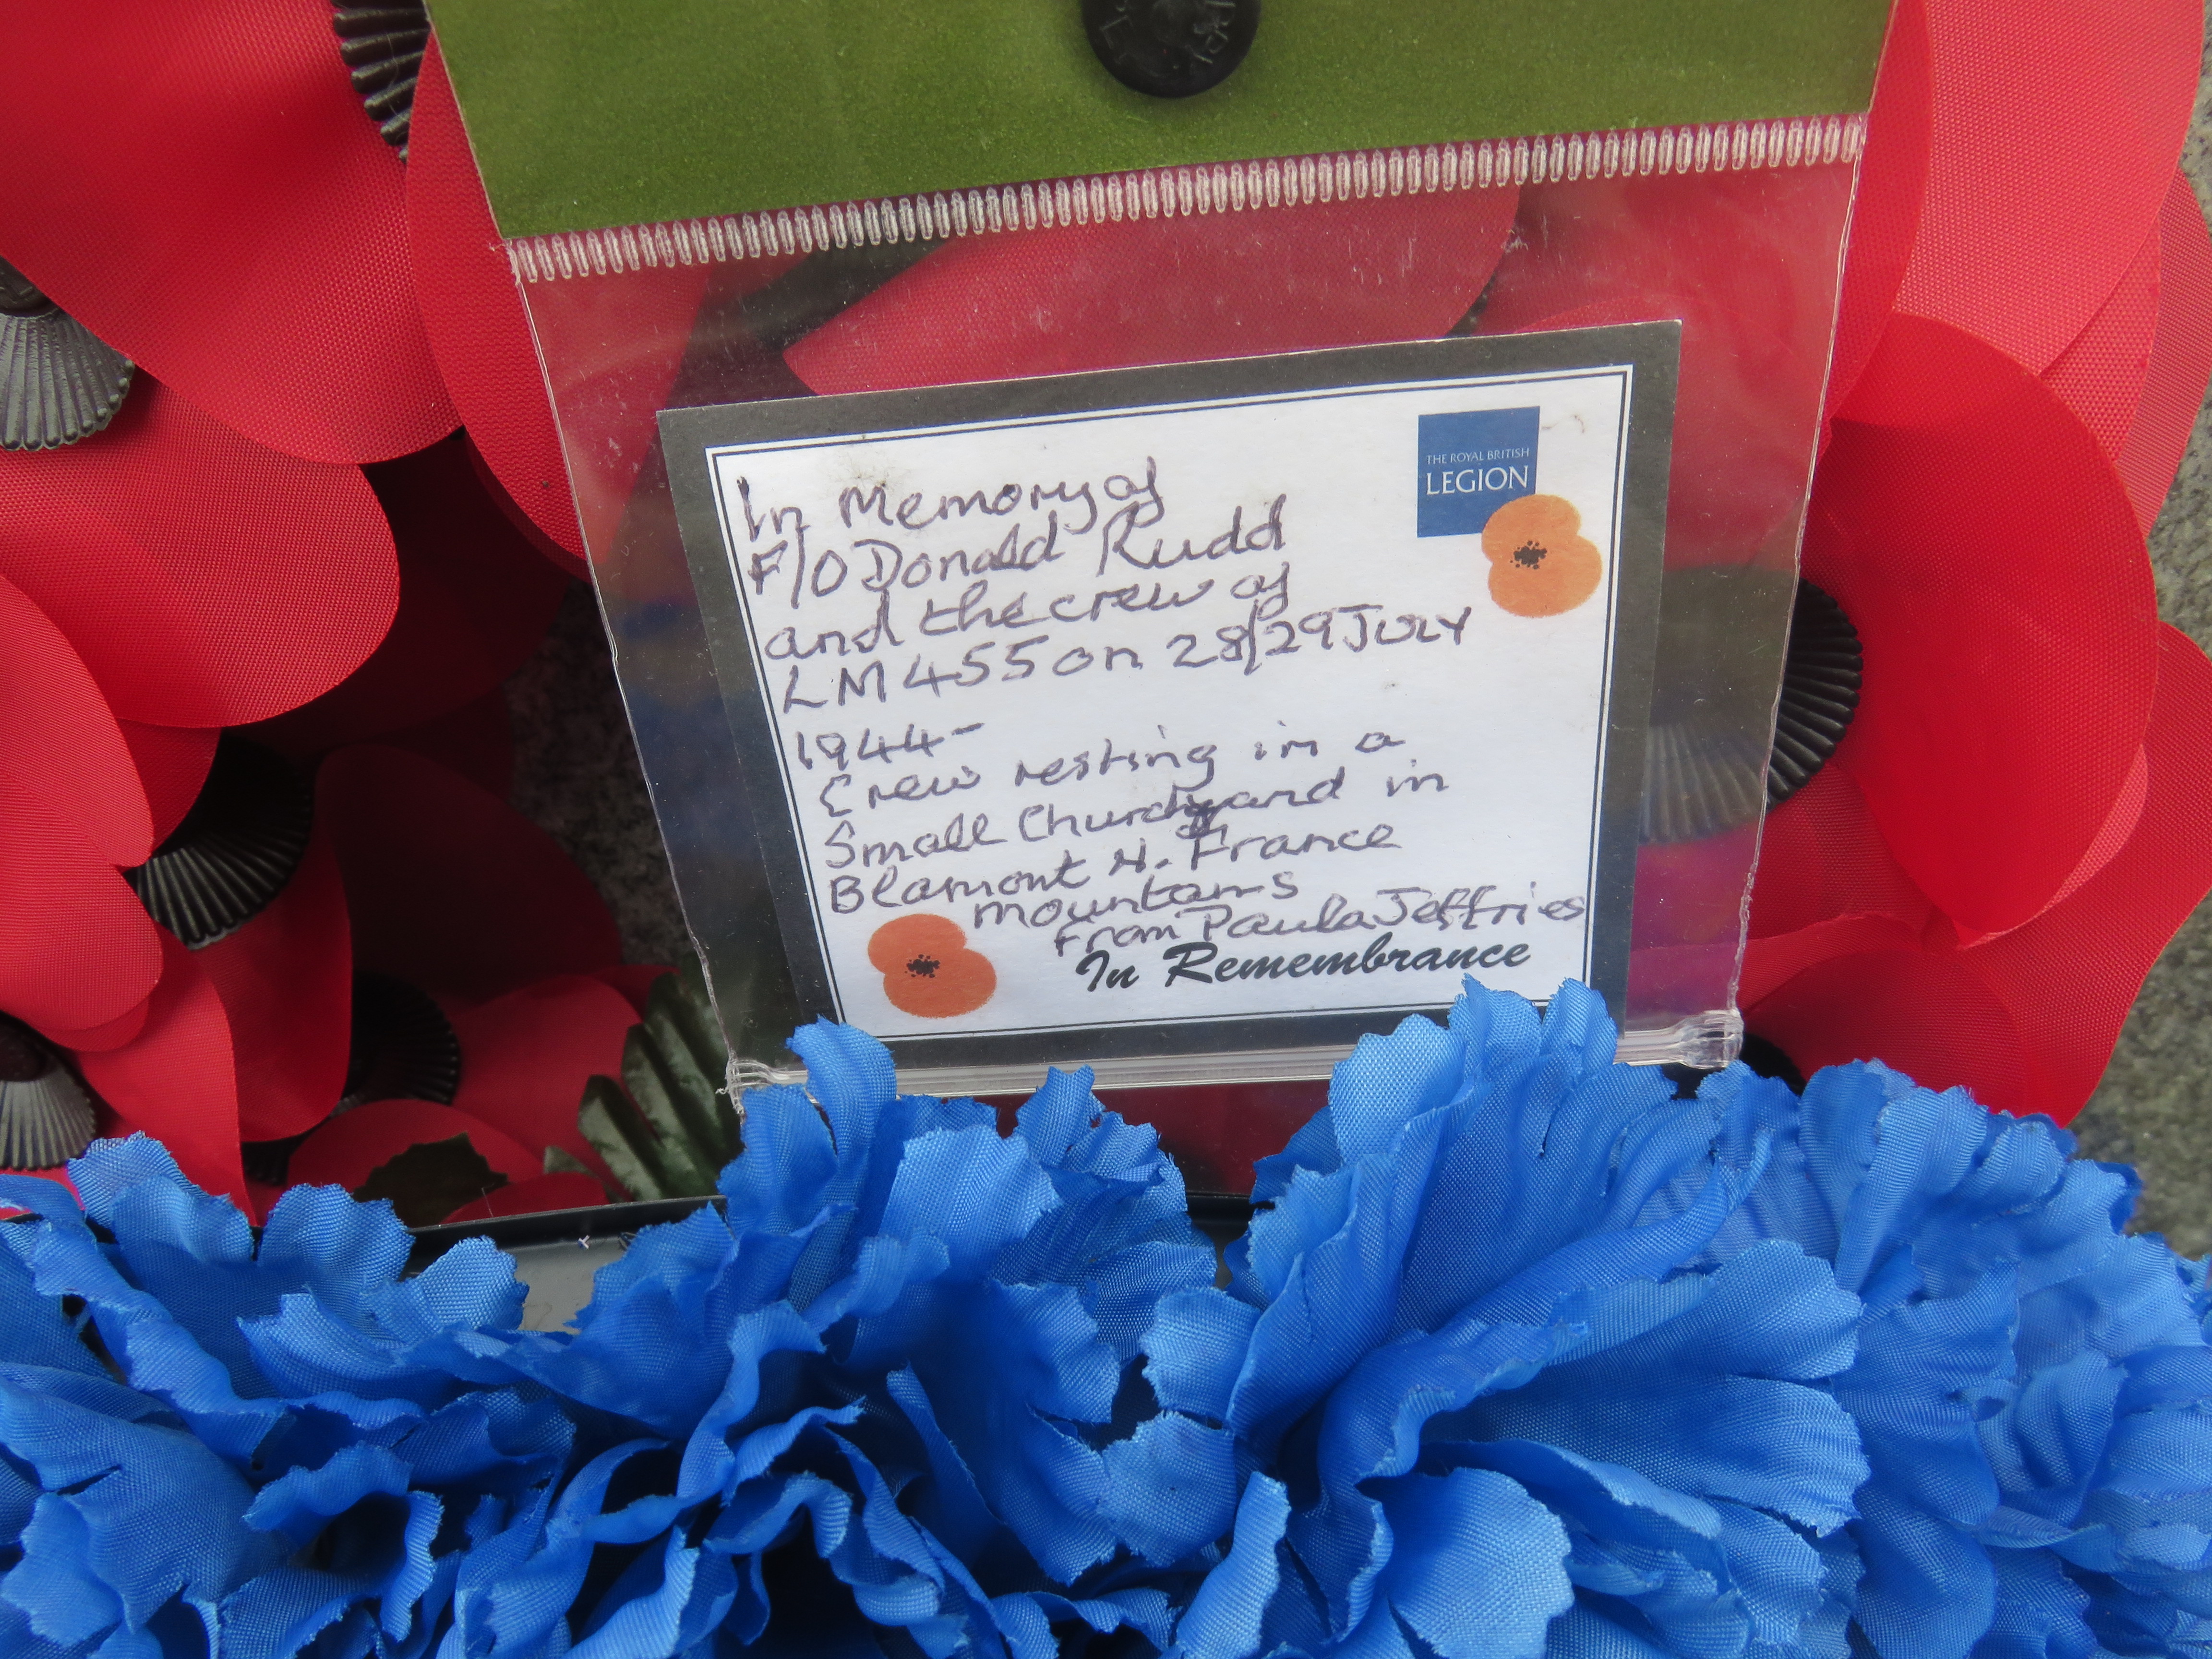 THE ROYAL BRITISH
LEGION
In Memory of
F/O Donald Rudd
and the crew of
LM455 on 28/29 July
1944-
Crew resting in a
Small Churchyard in
Blamont N. France
mountains
from Paula Jeffries
In Remembrance